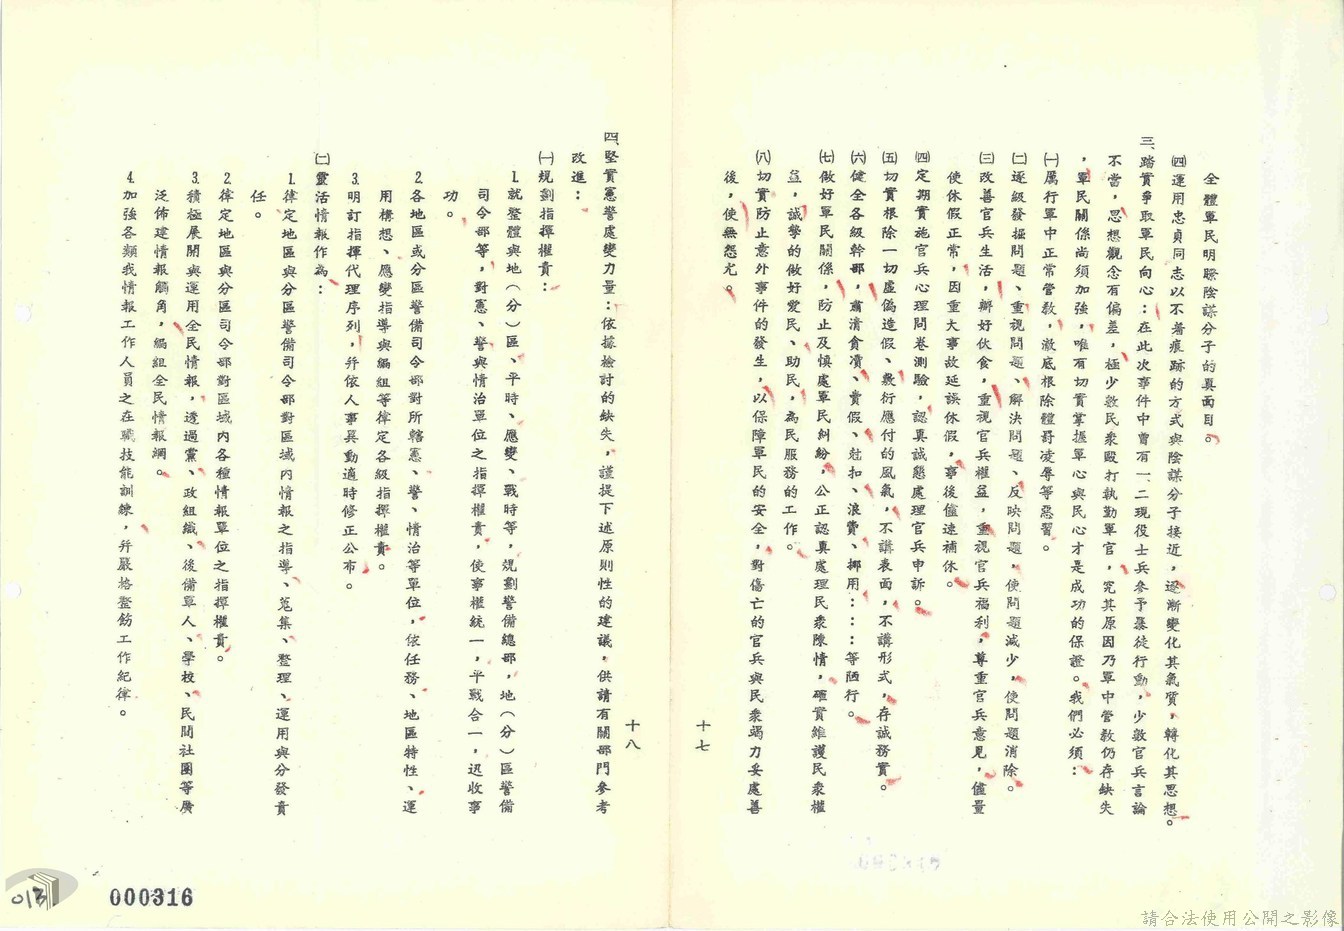 全體軍民明瞭陰謀分子的真面目。
㈣運用忠貞同志以不著痕跡的方式與陰謀分子接近，逐漸變化其氣質，轉化其思想。
三、踏實爭取軍民向心：在此次事件中曾有一、二現役士兵參予暴徒行動，少數官兵言論
不當，思想觀念有偏差，極少數民衆毆打執勤軍官，究其原因乃軍中管教仍存缺失
，軍民關係尚須加強，唯有切實掌握軍心與民心才是成功的保證。我們必須：
㈠厲行軍中正常管教，澈底根除體罰凌辱等惡習。
㈡逐級發掘問題、重視問題、解決問題、反映問題，使問題減少，使問題消除。
㈢改善官兵生活，辦好伙食，重視官兵權益，重視官兵福利，尊重官兵意見，儘量
使休假正常，因重大事故延誤休假，事後儘速補休。
㈣定期實施官兵心理問卷測驗，認真誠懇處理官兵申訴。
㈤切實根除一切虛偽造假、敷衍應付的風氣，不講表面，不講形式，存誠務實。
㈥健全各級幹部，肅清貪瀆、賣假、尅扣、浪費、挪用：：：等陋行。
㈦做好軍民關係，防止及慎處軍民糾紛，公正認真處理民衆陳情，確實維護民衆權
益，誠摯的做好愛民、助民，為民服務的工作。
㈧切實防止意外事件的發生，以保障軍民的安全，對傷亡的官兵與民衆竭力妥處善
後，使無怨尤。
十七
十八
四、堅實憲警處變力量：依據檢討的缺失，謹提下述原則性的建議，供請有關部門參考
改進：
㈠規劃指揮權責：
1.就整體與地（分）區、平時、應變、戰時等，規劃警備總部，地（分）區警備
司令部等，對憲、警與情治單位之指揮權責，使事權統一，平戰合一，迅收事
功。
2.各地區或分區警備司令部對所轄憲、警、情治等單位，依任務、地區特性、運
用構想、應變指導與編組等律定各級指揮權責。
3.明訂指揮代理序列，并依人事異動適時修正公布。
㈡靈活情報作為：
1.律定地區與分區警備司令部對區域內情報之指導、蒐集、整理、運用與分發責
任。
2.律定地區與分區司令部對區域內各種情報單位之指揮權責。
3.積極展開與運用全民情報，透過黨、政組織、後備軍人、學校、民間社團等廣
泛佈建情報觸角，編組全民情報網。
4.加強各類我情報工作人員之在職技能訓練，并嚴格整飭工作紀律。
013
000316
請合法使用公開之影像